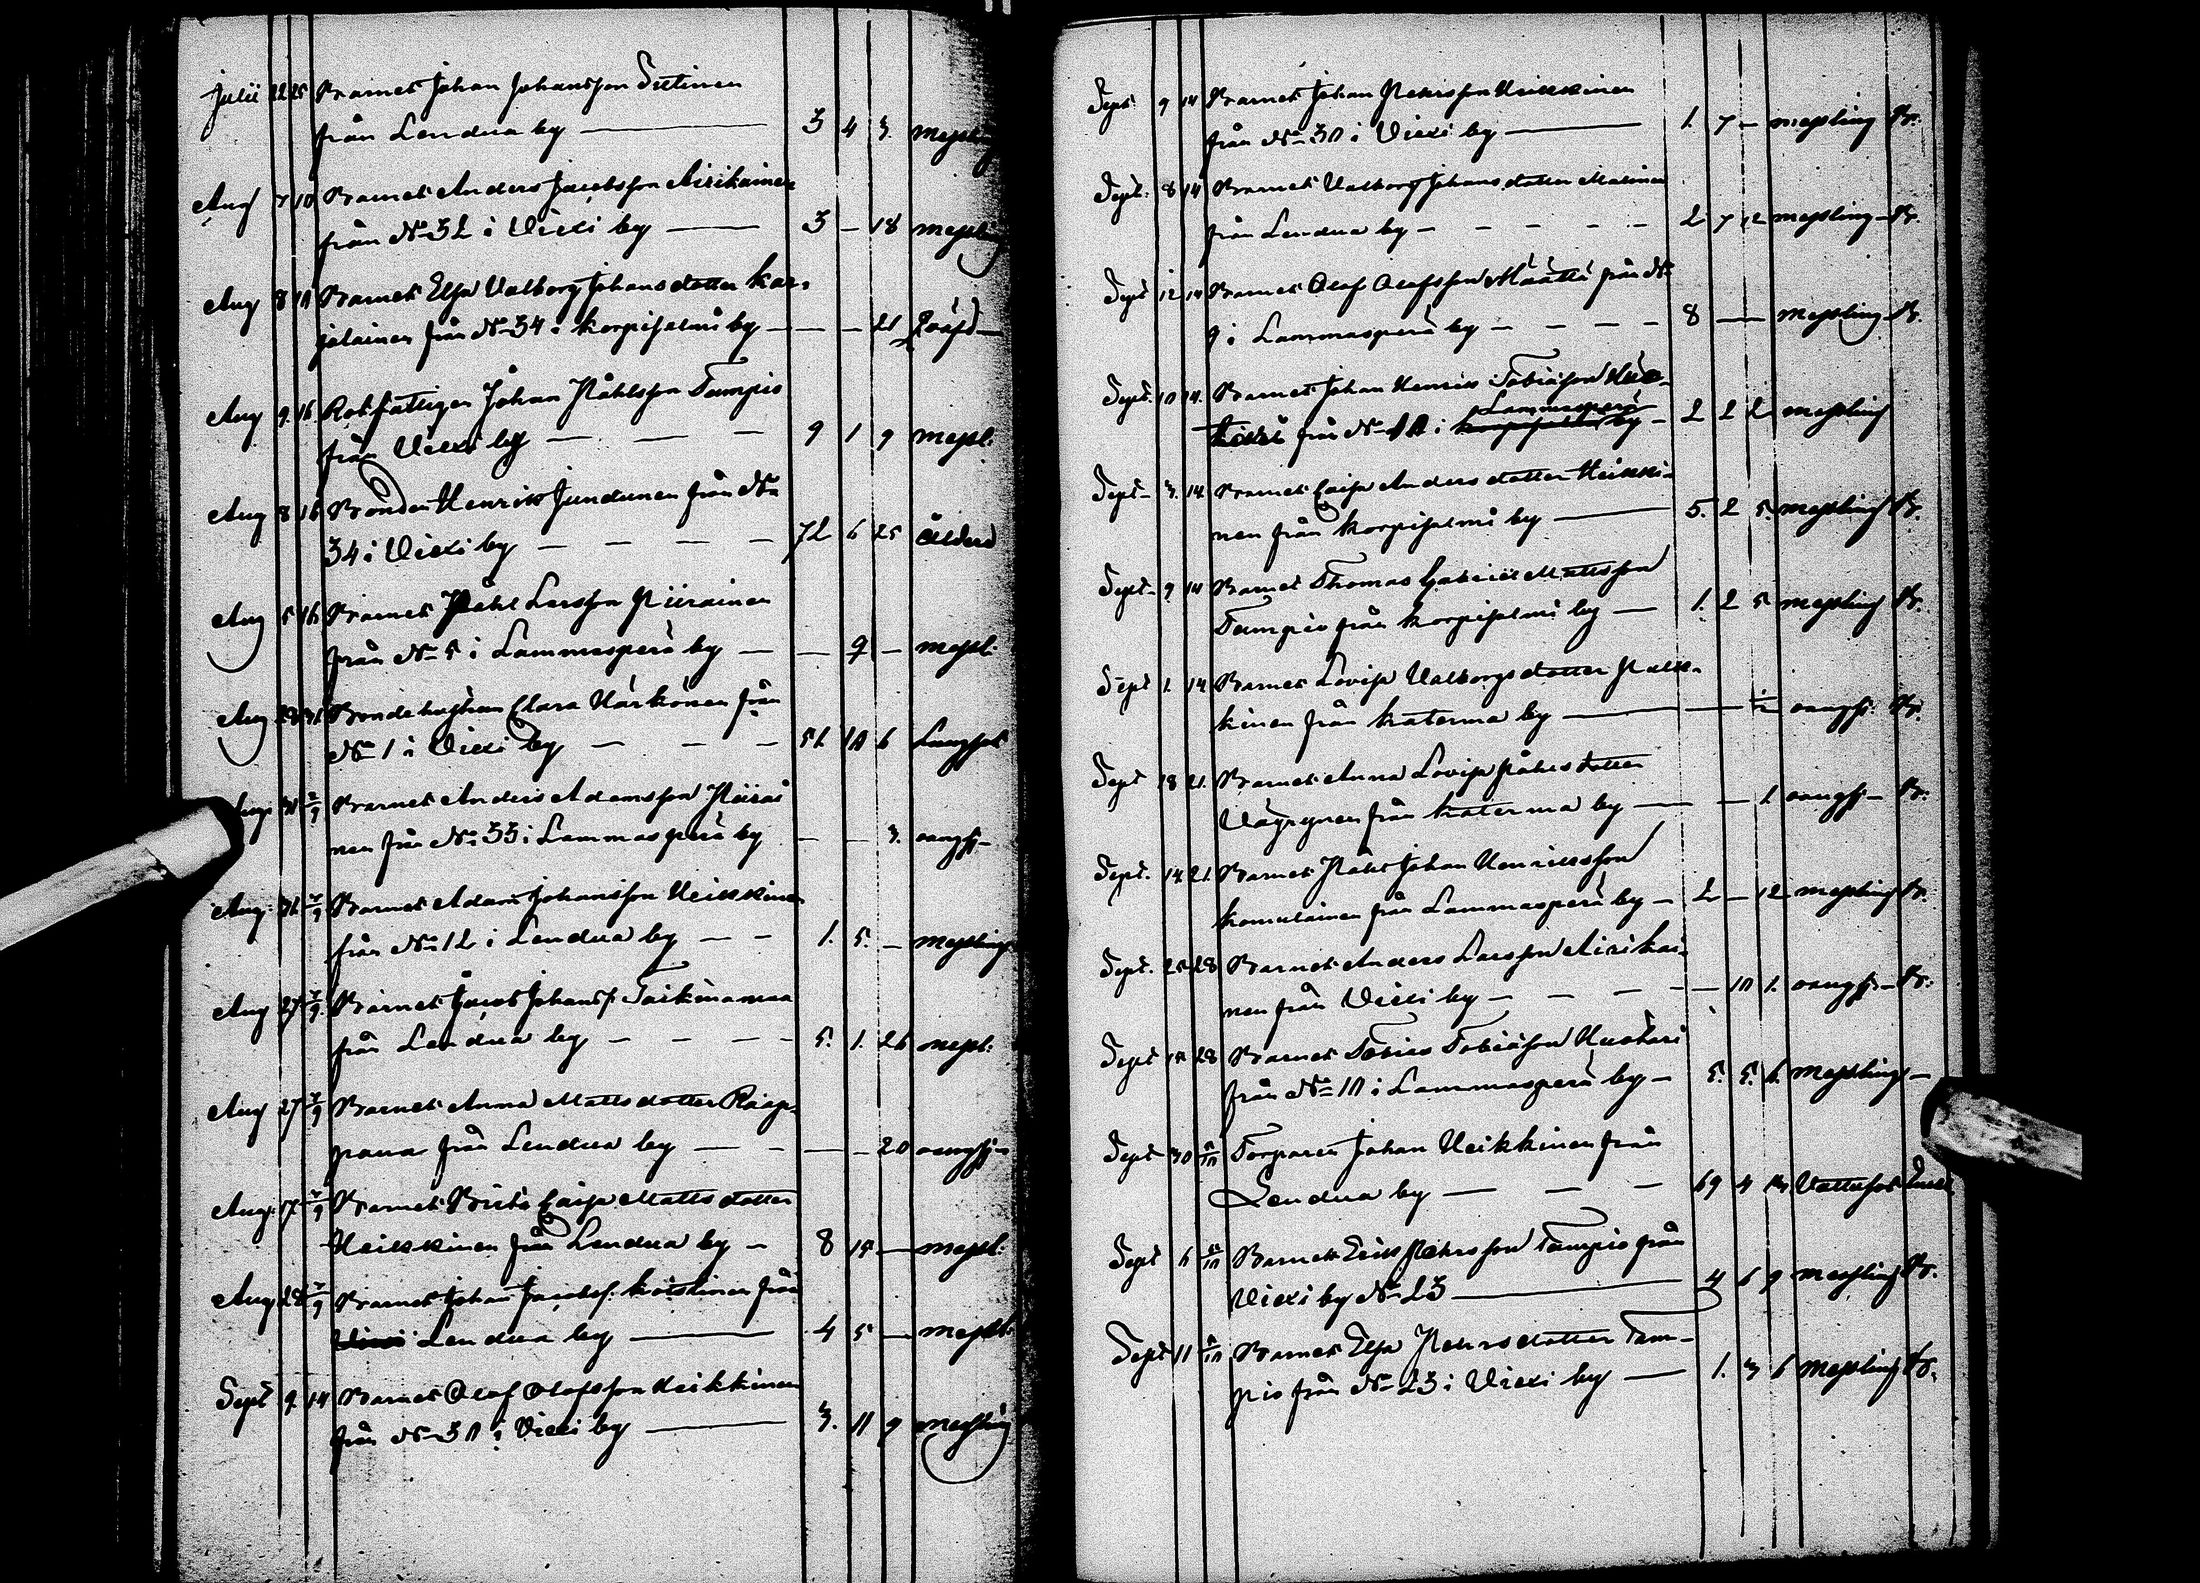 Julii 22 25 Barnet Johan Johansson Tietinen
från Lendua by — 3 4 3. messling
Aug 7 10 Barnet Anders Jacobsson Airikainen
från No 32 i Viexi by — 3 — 18 messling
Aug 8 10 Barnet Elsa Valborg Johansdotter Kar-
jalainen från No 34 i Korpisalmi by — — — 21
Aug 9. 16. Rotfattigen Johan Påhlsson Tampio
från Viexi by — — — 9 1 9 messl:
Aug 8 16 Bonden Henrik Jundunen från No
34 i Viexi by — — — — 72 6 25 Ålderd
Aug 5 16 Barnet Påhl Larsson Piirainen
från No 5 i Lammasperä by — — 9 — messl:
Aug 28 31 Bondehustrun Clara Härkönen från
No 1 i Viexi by — — — 51 10 6 Lungsot
Aug: 31 7/9 Barnet Anders Adamsson Piirai
nen från No 33 i Lammasperä by — — 3. oangif-
Aug: 31. 7/9 Barnet Adam Johansson Heikkinen
från No 12 i Lendua by — — 1. 5. — messling
Aug 27 7/9 Barnet Jacob Johanss: Taikinamaa
från Lendua by — — — — 5. 1. 26 messl:
Aug 27 7/9 Barnet Anna Mattsdotter Räap-
pana från Lendua by — — — — 20 oangif-
Aug: 17. 7/9 Barnet Brita Caisa Mattsdotter
Heikkinen från Lendua by — 8 15 — messl:
Aug 28 7/9 Barnet Johan Jacobss: Koistinen från
Viexi Lendua by — 4 5 — messl:
Sept 9. 14 Barnet Olof Olofsson Heikkinen
från No 30 i Viexi by — 3. 11 9 messling
Sept 9 14 Barnet Johan Pehrsson Heikkinen
från No 30 i Viexi by — 1. 7 — messling Br.
Sept: 8 14 Barnet Valborg Johansdotter Malinen
från Lendua by — — — — — 2 7 12 messling — Br.
Sept 12 14 Barnet Olof Olofsson Määttä från No
9 i Lammasperä by — — — — 8 — — messling Br.
Sept. 10 14. Barnet Johan Henrik Tobiasson
från No 10 i Lammasperä Korpisalmi by — 2 2 2 messling
Sept— 3. 14. Barnet Caisa Andersdotter Heikki-
nen från Korpisalmi by — 5. 2 5. messling Br.
Sept— 9 14 Barnet Thomas Gabriel Mattsson
Tampio från Korpisalmi by — 1. 2 5 messling Br.
Sept 1. 14 Barnet Lovisa Valborgsdotter Pulk-
kinen från Katerma by — — 1/2 oangif. Br.
Sept 18 21. Barnet Anna Lovisa Påhlsdotter
från Katerma by — — 1. oangif— Br.
Sept. 14 21. Barnet Påhl Johan Henriksson
Komulainen från Lammasperä by — 2 — 12 messling Br.
Sept. 25 28 Barnet Anders Larsson Airikai-
nen från Viexi by — — — — — 10 1. oangif— Br.
Sept 15 28 Barnet Tobias Tobiasson Huotari
från No 10 i Lammasperä by — 5. 5. 6. messling —
Sept 30 5/10 Torparen Johan Heikkinen från
Lendua by — — — 69 4 Vattusot
Sept 6 5/10 Barnet Erik Pehrsson Tampio från
Viexi by No 23 — 4 6 9 messling Br.
Sept 11 5/10 Barnet Elsa Pehrsdotter Tam-
pio från No 23 i Viexi by — 1. 3 6 messling Br.